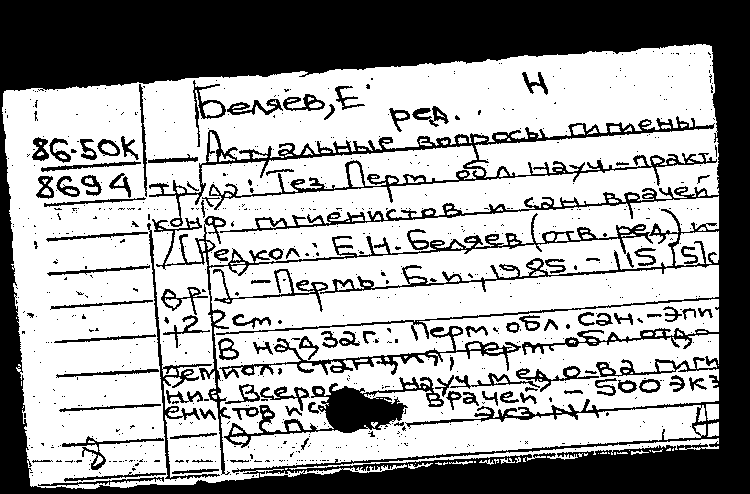 Беляев, Е. Н
ред.
86-50К Актуальные вопросы гигиены
8694 труда: Тез. Перм. обл. науч.-практ.
конф. гигиенистов и сан. врачей
/[Редкол.: Е.Н. Беляев (отв. ред.) и
др.]. – Пермь: Б.и., 1985. – 115, [5] с
; 22 см.
В надзаг.: Перм. обл. сан.-эпи-
демиол. станция, Перм. обл. отд-
ние Всерос. науч. мед. о-ва гиги
енистов и с врачей. – 500 экз
ДСП. Экз. N4.